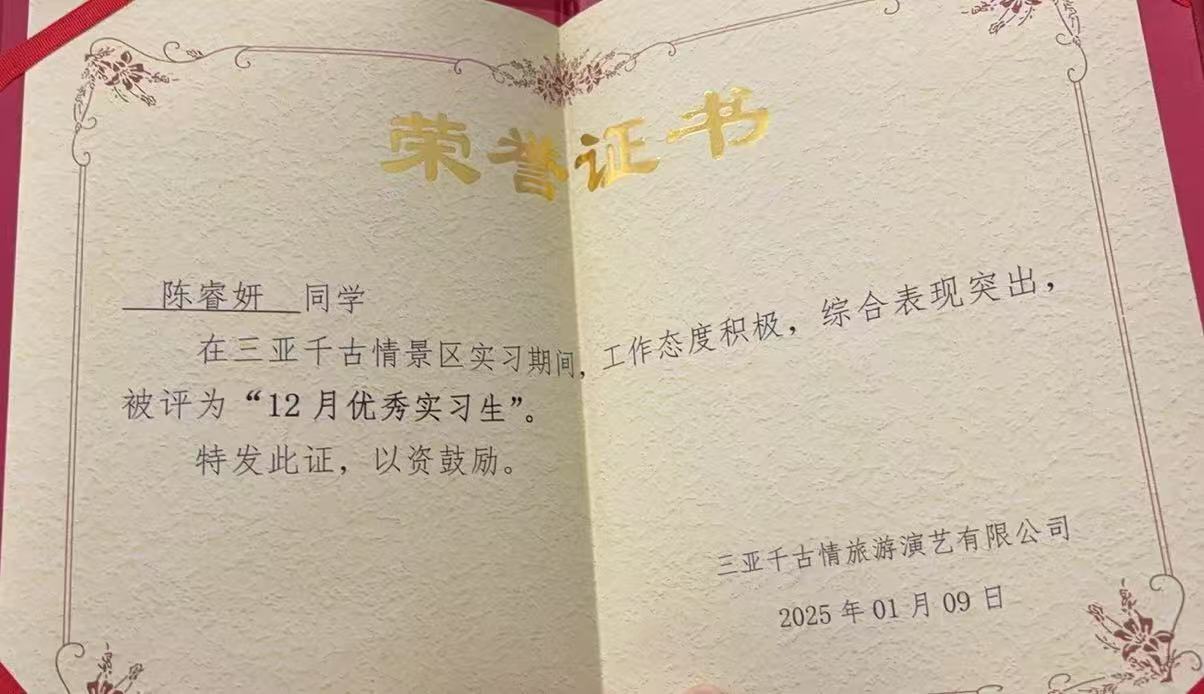 荣誉证书
陈睿妍 同学
在三亚千古情景区实习期间，工作态度积极，综合表现突出，
被评为“12月优秀实习生”。
特发此证，以资鼓励。
三亚千古情旅游演艺有限公司
2025年01月09日